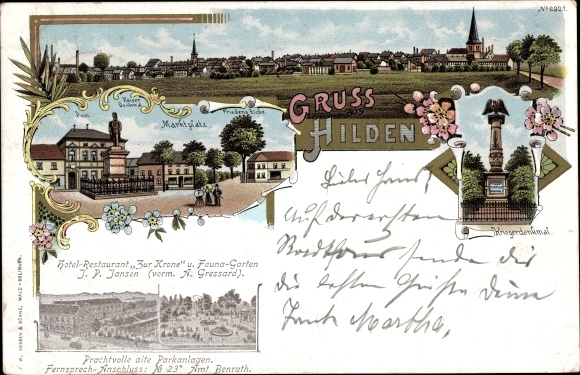 No 2921.
GRUSS
aus
HILDEN
Post
Kaiser
Denkmal
Marktplatz
Friedens Eiche
Kriegerdenkmal
Liebes Hans!
Auf der ersten
sende dir
die besten Grüße deine
Tante Martha,
Hotel-Restaurant „Zur Krone" u. Fauna-Garten
J. P. Jansen (vorm. A. Gressard).
Prachtvolle alte Parkanlagen.
Fernsprech-Anschluss: № 23 Amt Benrath.
& SÖHNE, WALD - SOLINGEN.